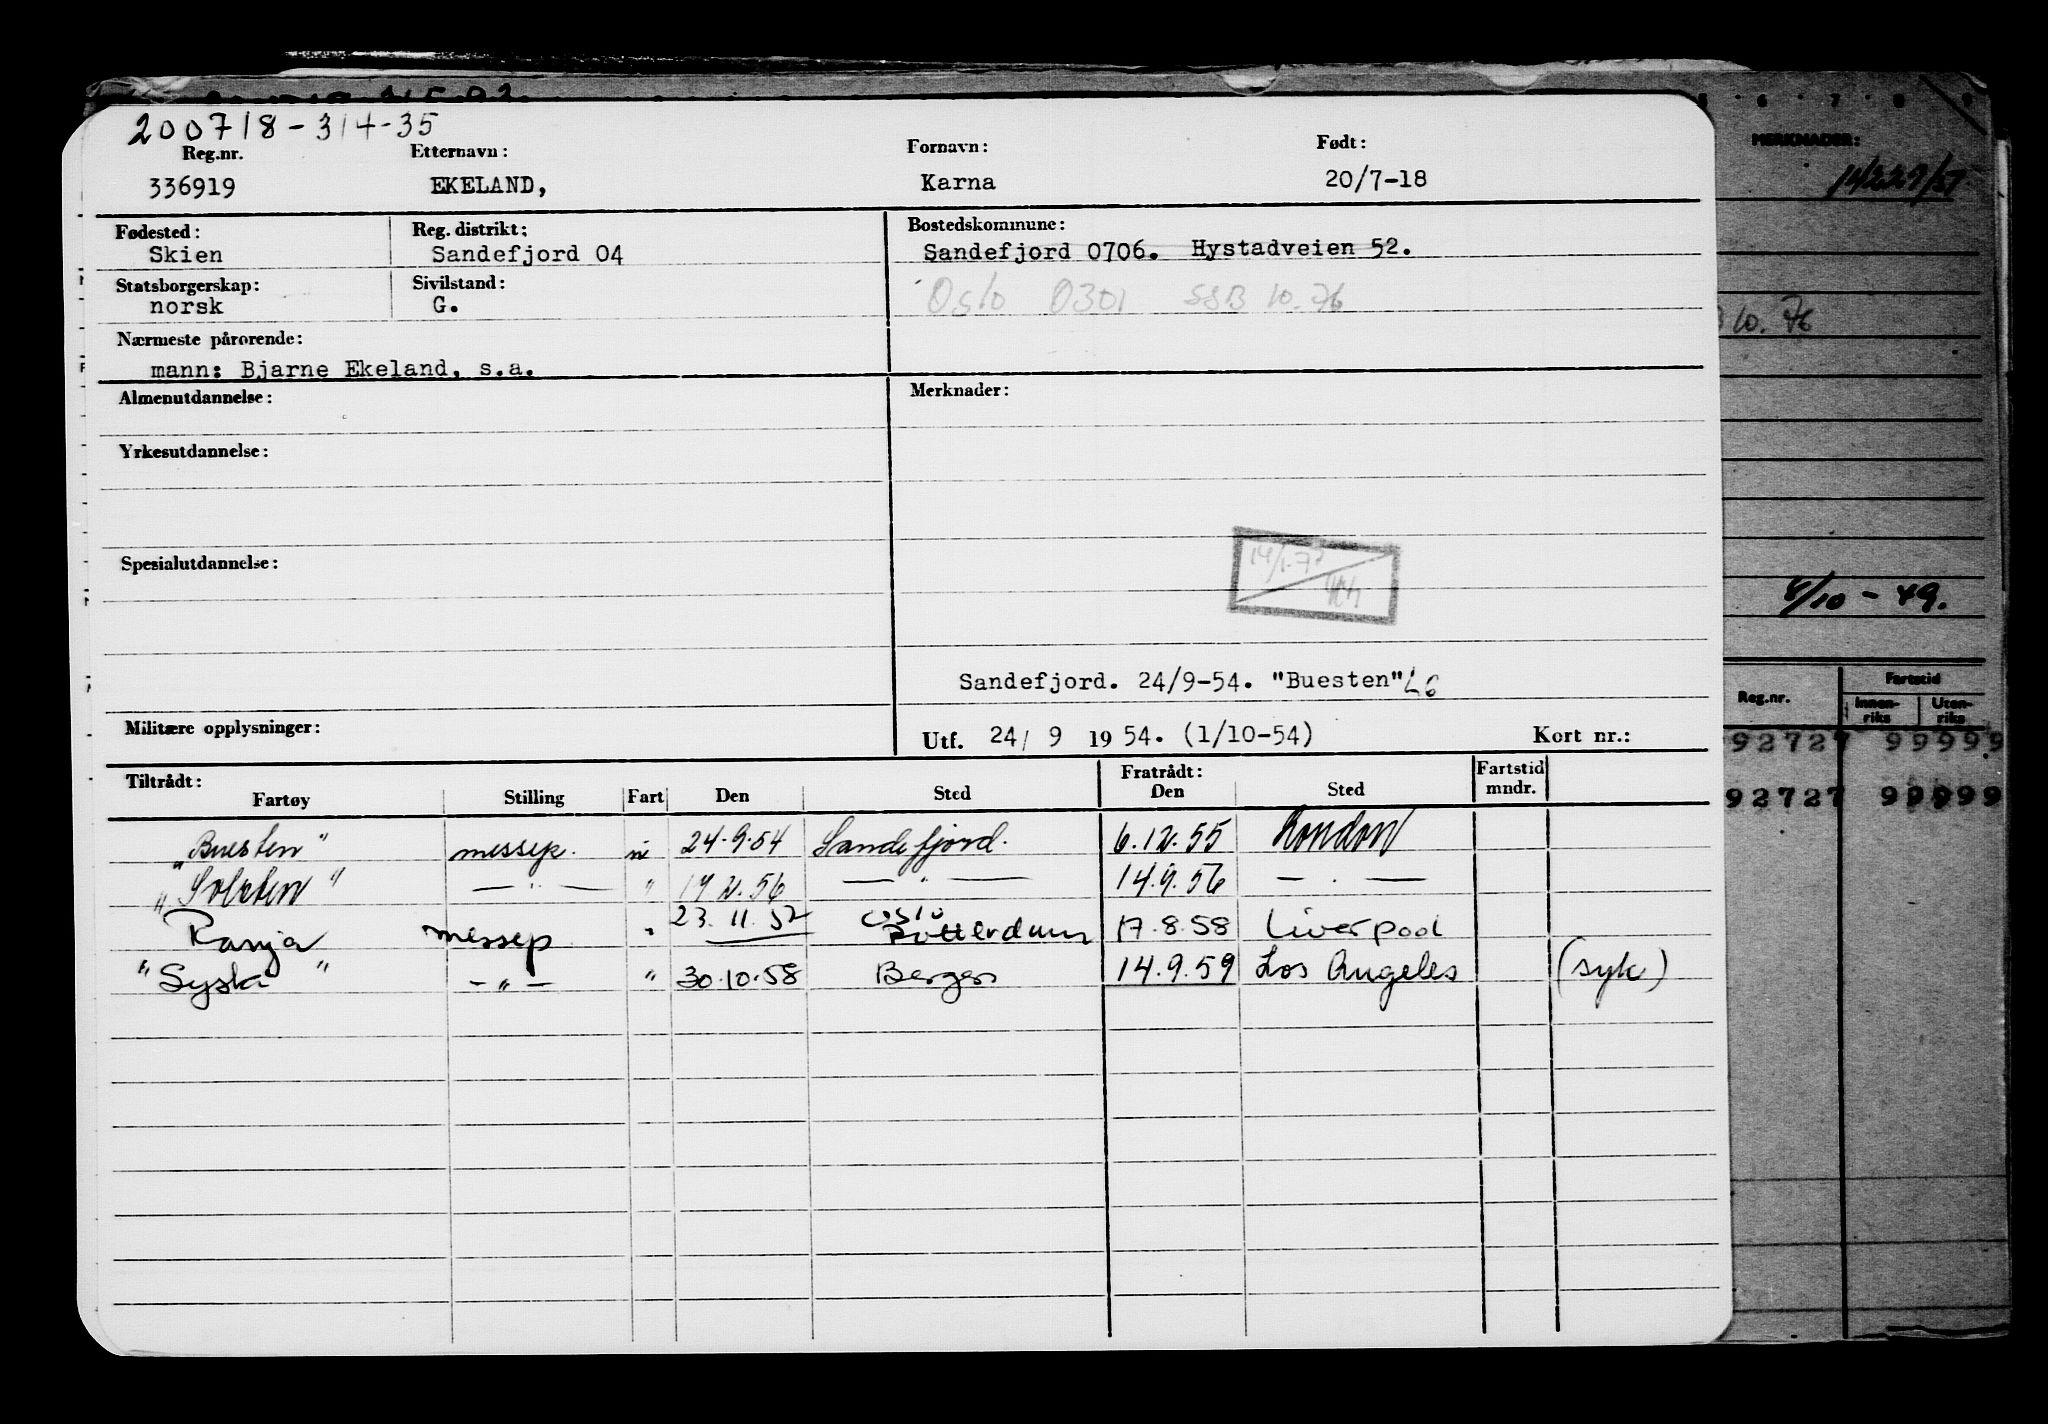 200718-314-35
Reg.nr. Etternavn: Fornavn: Født:
336919 EKELAND, Karna 20/7-18
Fødested: Reg. distrikt: Bostedskommune:
Skien Sandefjord 04 Sandefjord 0706. Hystadveien 52.
Statsborgerskap: Sivilstand:
norsk G. Oslo 0301 SSB 10.76
Nærmeste pårørende:
mann: Bjarne Ekeland, s.a.
Almenutdannelse: Merknader:
Yrkesutdannelse:
Spesialutdannelse:
Sandefjord. 24/9-54. "Buesten"
Militære opplysninger:
Utf. 24/ 9 19 54. (1/10-54) Kort nr.:
Tiltrådt: Fratrådt: Fartstid
Fartøy Stilling Fart Den Sted Den Sted mndr.
"Buesten" messep. u 24.9.54 Sandefjord. 6.12.55 London
"Solsten" — " — " 56 — " — 14.9.56 — . —
Ranja messep " 23.11.57 Oslo Rotterdam 17.8.58 Liverpool
"Sysla" - " - " 30.10.58 Bergen 14.9.59 Los Angeles (syk)
6 7 8 9
MERKNADER:
10.76
8/10 - 49.
Reg.nr. Fartstid
Innen-riks Uten-riks
92727 99999
92727 99999